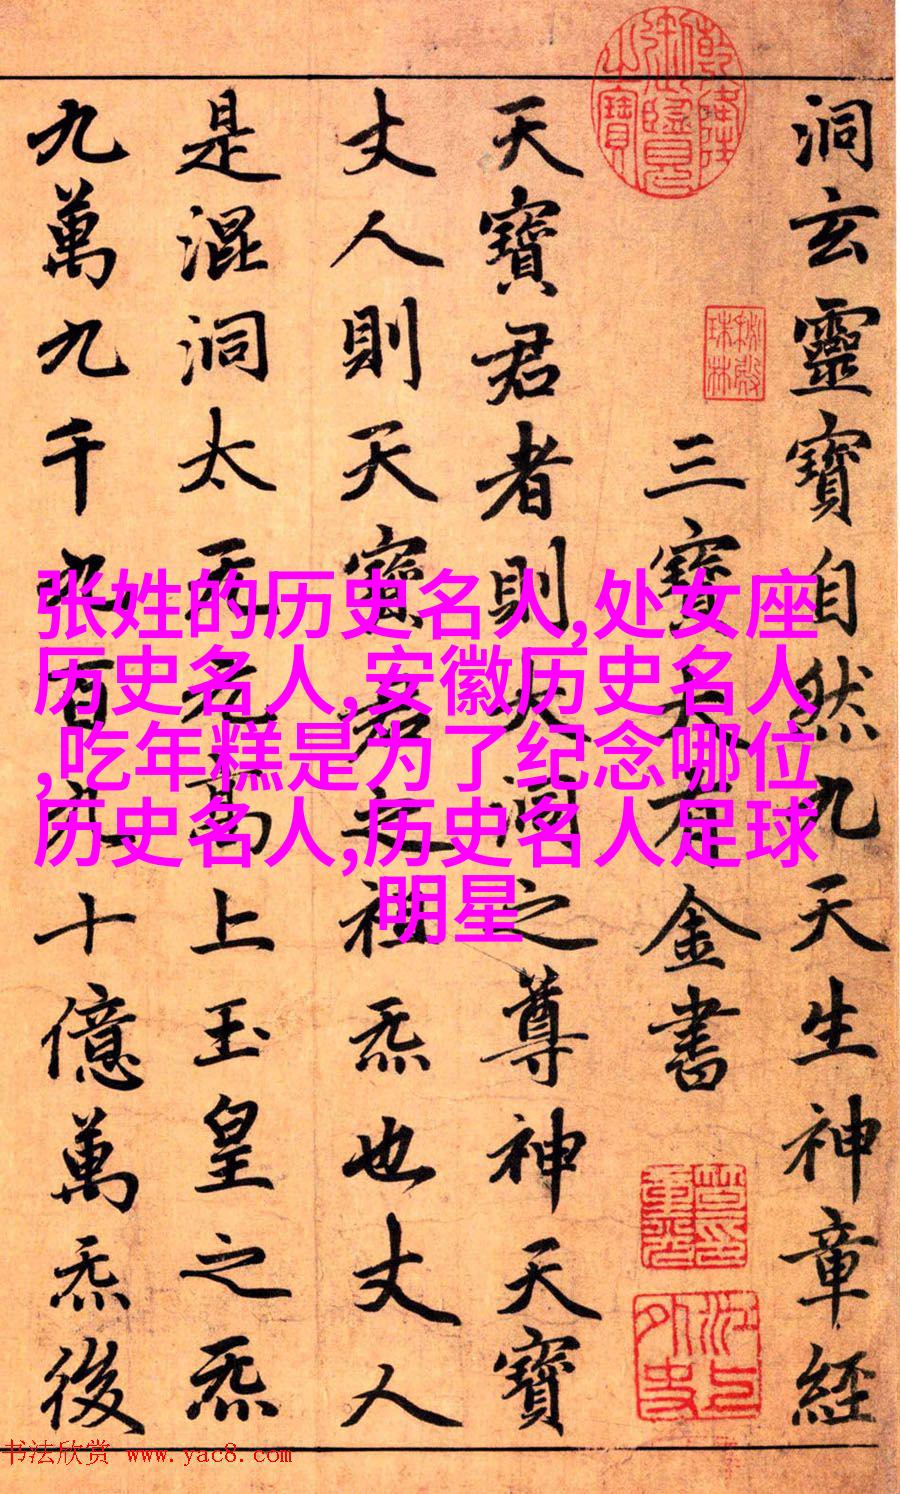 洞玄靈寶自然九天生神章經
三寶大有金書
天寶君者則大洞之尊神天寶
丈人則天寶君之祖炁也丈人
是混洞太无元高上玉皇之炁
九萬九千九百九十億萬炁後
张姓的历史名人,处女座
历史名人,安徽历史名人
,吃年糕是为了纪念哪位
历史名人,历史名人足球
明星
书法欣赏 www.yac8.com